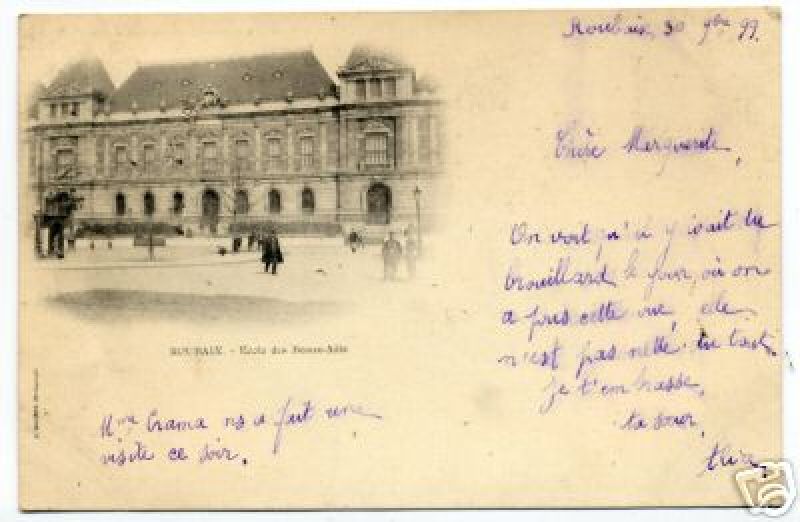 Roubaix, 30 9bre 99.
Chère Marguerite,
On voit qu'il y avait du
brouillard le jour, où on
a pris cette vue, elle
n'est pas nette du tout
Je t'embrasse,
ta sœur,
ROUBAIX. - Ecole des Beaux-Arts
Mme Crama ns a fait une
visite ce soir.